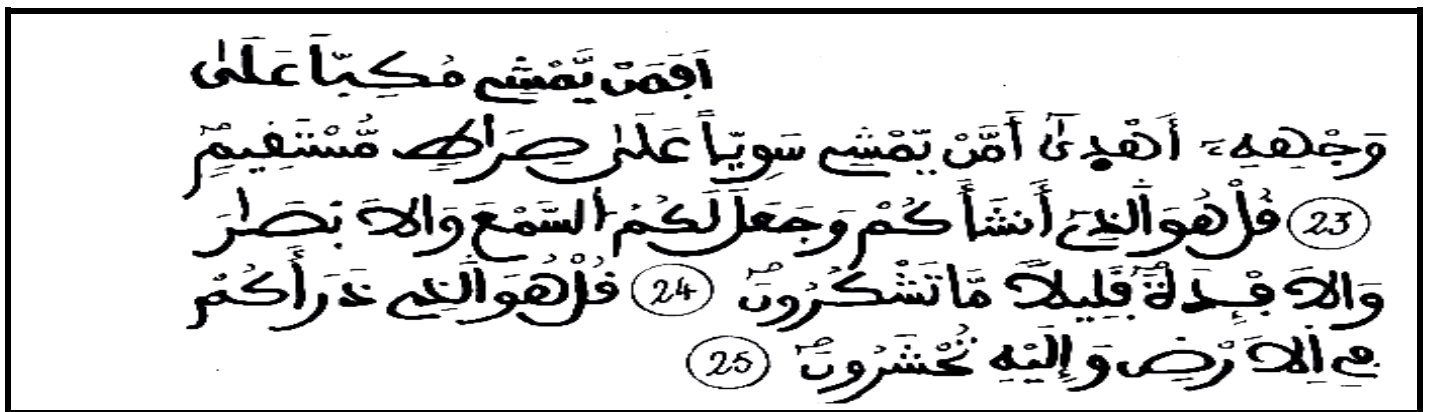 اَفَمَنْ يَّمْشِي مُكِبّاً عَلَىٰ
وَجْهِهِۦٓ أَهْدَىٰٓ أَمَّنْ يَّمْشِي سَوِيّاً عَلَىٰ صِرَاطٍ مُّسْتَقِيمٍ
(23) قُلْ هُوَ ٱلذِيٓ أَنشَأَكُمْ وَجَعَلَ لَكُمُ ٱلسَّمْعَ وَالَابْصَٰرَ
وَالَافْـِٕدَةَ قَلِيلاً مَّا تَشْكُرُونَ (24) قُلْ هُوَ ٱلذِي ذَرَأَكُمْ
فِي اِلَارْضِ وَإِلَيْهِ تُحْشَرُونَ (25)